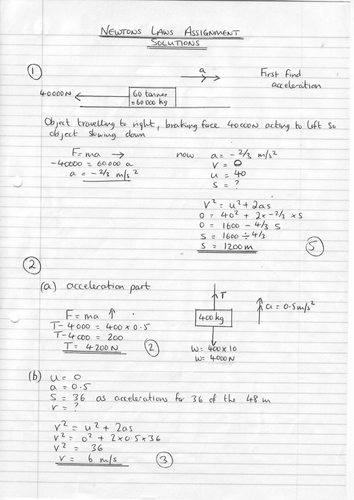 NEWTONS LAWS ASSIGNMENT
SOLUTIONS
1
a
First find
acceleration
40000N
60 tonnes
= 60 000 kg
Object travelling to right, braking force 40000N acting to left so
object slowing down
F = ma →
-40000 = 60000 a
a = -2/3 m/s²
now a = -2/3 m/s²
v = 0
u = 40
s = ?
v² = u² + 2as
0 = 40² + 2 x -2/3 x s
0 = 1600 - 4/3 s
s = 1600 ÷ 4/3
s = 1200m
5
2
(a) acceleration part
F = ma ↑
T - 4000 = 400 x 0.5
T - 4000 = 200
T = 4200N
2
T
400 kg
a = 0.5 m/s²
W = 400 x 10
W = 4000N
(b) u = 0
a = 0.5
s = 36 as accelerations for 36 of the 48 m
v = ?
v² = u² + 2as
v² = 0² + 2 x 0.5 x 36
v² = 36
v = 6 m/s
3